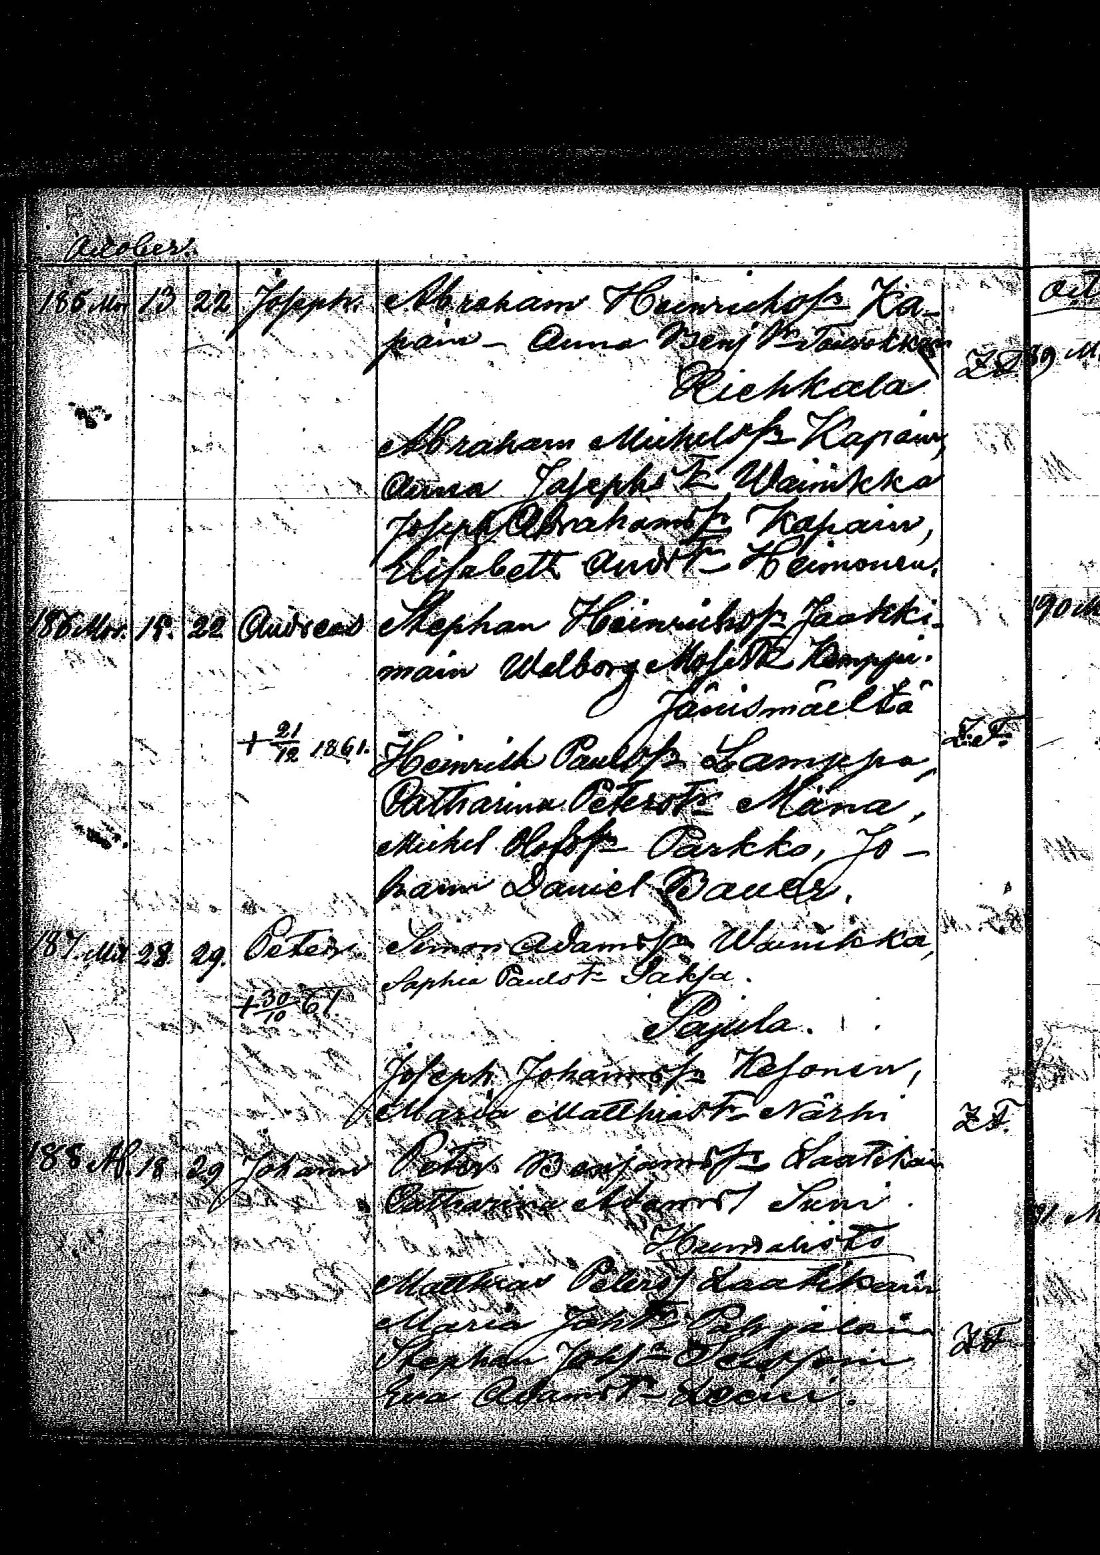 October.
185 Mor 13 22 Joseph. Abraham Heinrichoss Ka-
pain - Anna Benj
Riehkala
Abraham Micheloss Kapain,
Anna Josephstr Wainikka
Joseph Abrahamss Kapain,
Elisabeth Andrstr Heimonen.
186 Mor. 15. 22 Andreas Stephan Heinrichoss Jaakki-
main Walborg Mosestr Kemppi.
Jänismäeltä
+ 21/12 1861. Z.T.
Heinrich Pauloss Lamppa,
Catharina Peterstr Mäna,
Michel Olofss Parkko, Jo-
hann Daniel Bauer.
187. 28 29. Peter. Simon Adamss Wainikka,
Sophia Paulstr
+ 30/10 61.
Pajula.
Joseph Johannss Kesonen,
Maria Matthiastr Närhi
Z.T.
188 18 29 Johannes Peter Benjamss Laatikain
Catharina Adamst Suni.
Matthias Peterss Laatikain
Maria Johstr
Stephan Johss
Eva Adamstr